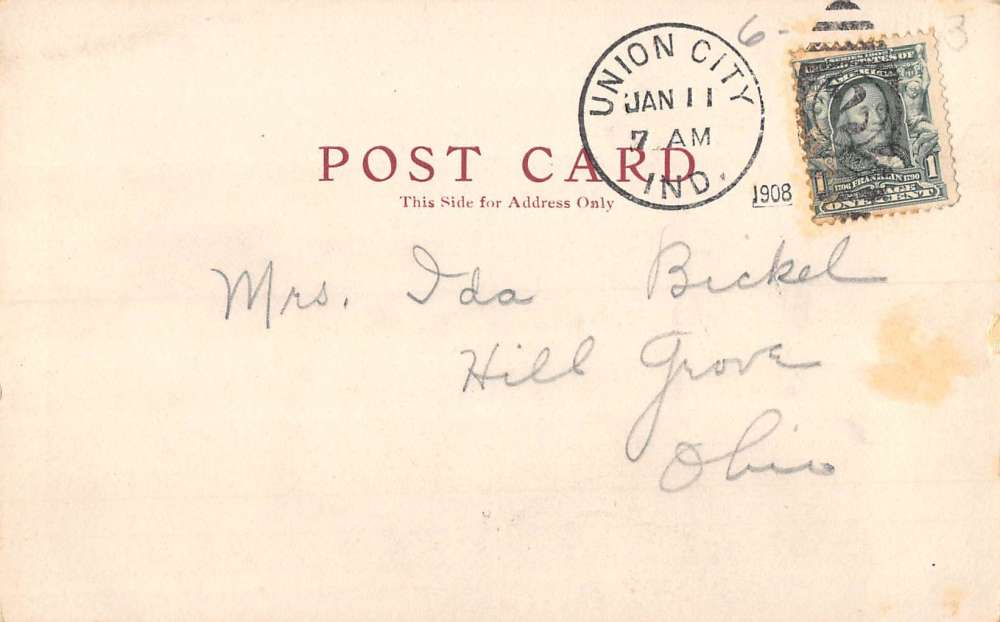 6-
3
UNION CITY
JAN 11
7 AM
IND.
1908
SERIES 1902
UNITED STATES OF
AMERICA
1 1
1706 FRANKLIN 1790
POSTAGE
ONE CENT
POST CARD
This Side for Address Only
Mrs. Ida Bickel
Hill Grove
Ohio